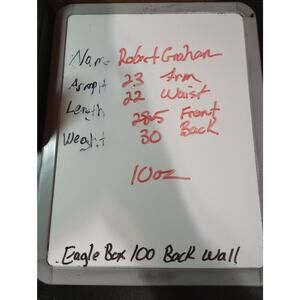 Name Robert Graham
Armpit 23 Arm
Length 22 Waist
28.5 Front
Weight 30 Back
10oz
.Eagle Box 100 Back Wall